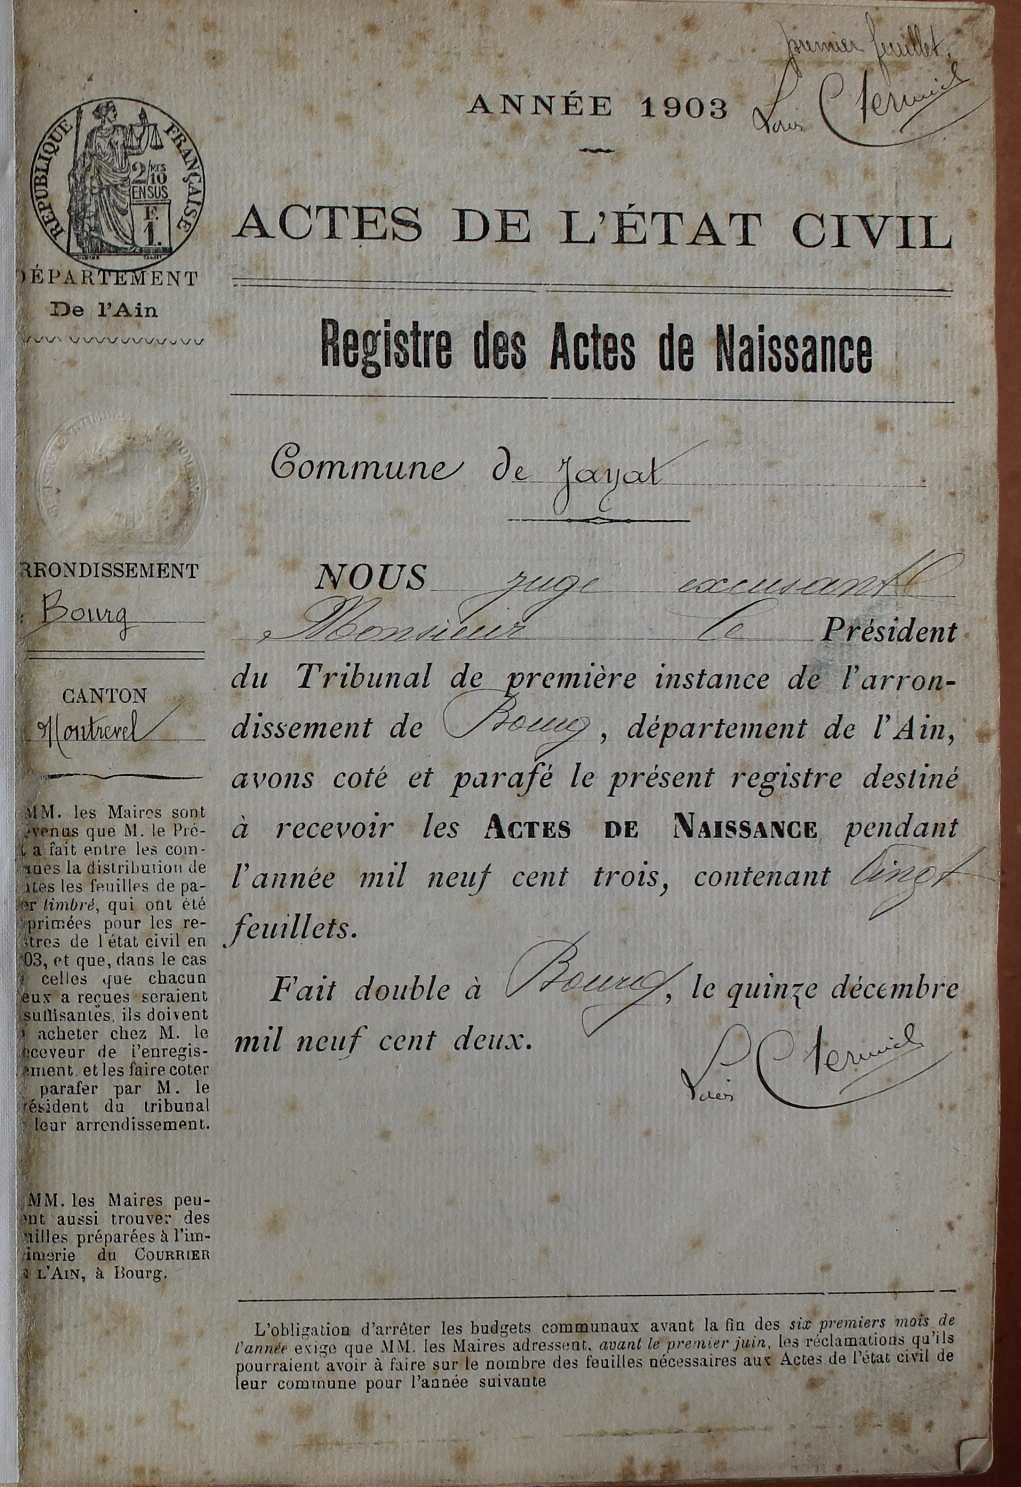 premier feuillet.
ANNÉE 1903
Louis
RÉPUBLIQUE FRANÇAISE
2/10
EN SUS
F.
1.
ACTES DE L'ÉTAT CIVIL
DÉPARTEMENT
De l'Ain
Registre des Actes de Naissance
Commune de Jayat
RRONDISSEMENT
Bourg
CANTON
Montrevel
NOUS juge excusant
Monsieur le Président
du Tribunal de première instance de l'arron-
dissement de Bourg, département de l'Ain,
avons coté et parafé le présent registre destiné
à recevoir les ACTES DE NAISSANCE pendant
l'année mil neuf cent trois, contenant vingt
feuillets.
Fait double à Bourg, le quinze décembre
mil neuf cent deux.
Louis
MM. les Maires sont
venus que M. le Pré-
t a fait entre les com-
nes la distribution de
tes les feuilles de pa-
er timbré, qui ont été
primées pour les re-
stres de l'état civil en
03, et que, dans le cas
celles que chacun
eux a reçues seraient
suffisantes, ils doivent
acheter chez M. le
ceveur de l'enregis-
ement, et les faire coter
parafer par M. le
résident du tribunal
leur arrondissement.
MM. les Maires peu-
ent aussi trouver des
uilles préparées à l'im-
rimerie du COURRIER
L'AIN, à Bourg.
L'obligation d'arrêter les budgets communaux avant la fin des six premiers mois de
l'année exige que MM. les Maires adressent, avant le premier juin, les réclamations qu'ils
pourraient avoir à faire sur le nombre des feuilles nécessaires aux Actes de l'état civil de
leur commune pour l'année suivante